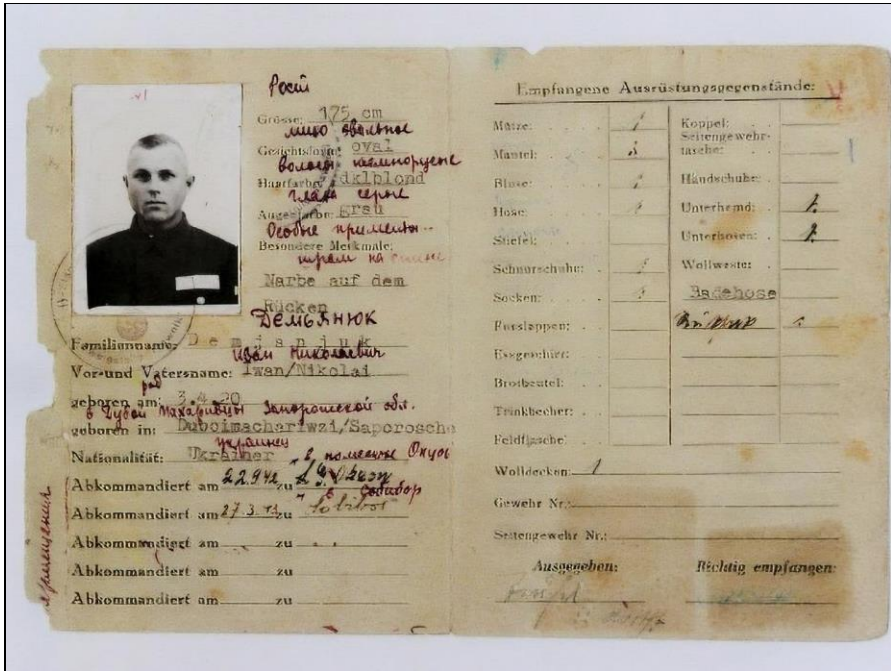 Рост
Grösse: 175 cm
лицо овальное
Gesichtsform: oval
волосы темнорусые
Haarfarbe: dklblond
глаза серые
Augenfarbe: grau
Особые приметы
Besondere Merkmale:
шрам на спине
Narbe auf dem
Rücken
ДЕМЬЯНЮК
Familienname: Demjanjuk
Иван Николаевич
Vor-und Vatersname: Iwan/Nikolai
род
geboren am: 3.4.20
в Дубой Махаривцы Запорожской обл.
geboren in: Duboimachariwzi/Saporosche
украинец
Nationalität: Ukrainer
в поместье Окцов
Abkommandiert am 22.9.42 zu L.G. Okzow
в Собибор
Abkommandiert am 27.3.43 zu Sobibor
Abkommandiert am zu
Abkommandiert am zu
Abkommandiert am zu
Empfangene Ausrüstungsgegenstände:
Mütze: 1
Mantel: 1
Bluse: 1
Hose: 1
Stiefel:
Schnürschuhe: 1
Socken: 1
Fusslappen:
Essgeschirr:
Brotbeutel:
Trinkbecher:
Feldflasche:
Wolldecken: 1
Gewehr Nr.:
Seitengewehr Nr.:
Koppel:
Seitengewehr-
tasche:
Handschuhe:
Unterhemd: 1.
Unterhosen: 1.
Wollweste:
Badehose
Ausgegeben:
Richtig empfangen: